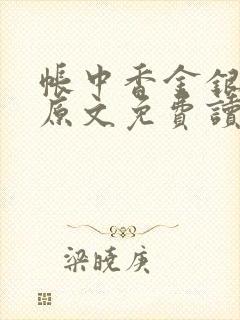 帳中香金銀
原文免費讀
梁曉庚